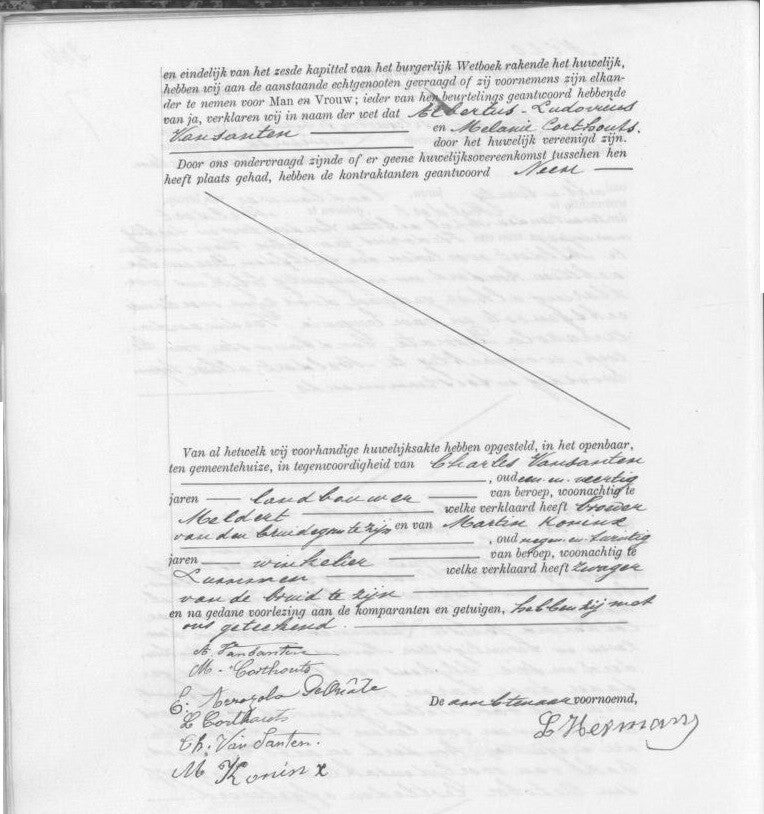 en eindelijk van het zesde kapittel van het burgerlijk Wetboek rakende het huwelijk,
hebben wij aan de aanstaande echtgenooten gevraagd of zij voornemens zijn elkan-
der te nemen voor Man en Vrouw; ieder van hen beurtelings geantwoord hebbende
van ja, verklaren wij in naam der wet dat Albertus-Ludovicus
Vansanten en Melanie Corthouts.
door het huwelijk vereenigd zijn.
Door ons ondervraagd zijnde of er geene huwelijksovereenkomst tusschen hen
heeft plaats gehad, hebben de kontraktanten geantwoord Neen
Van al hetwelk wij voorhandige huwelijksakte hebben opgesteld, in het openbaar,
ten gemeentehuize, in tegenwoordigheid van Charles Vansanten
, oud een en veertig
jaren landbouwer van beroep, woonachtig te
Meldert welke verklaard heeft broeder
van den bruidegom te zijn en van Martin Koninx
, oud negen en twintig
jaren winkelier van beroep, woonachtig te
Lummen welke verklaard heeft zwager
van de bruid te zijn
en na gedane voorlezing aan de komparanten en getuigen, hebben zij met
ons geteekend.
A. Vansanten
M. Corthouts
E.
De ambtenaar voornoemd,
L Corthouts
L Hermans
Ch. Van Santen.
M Koninx